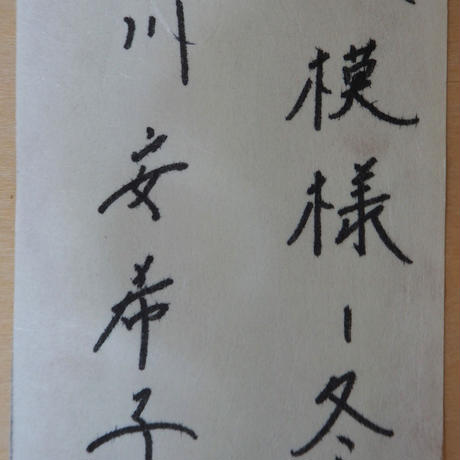 模様ー冬
川安希子